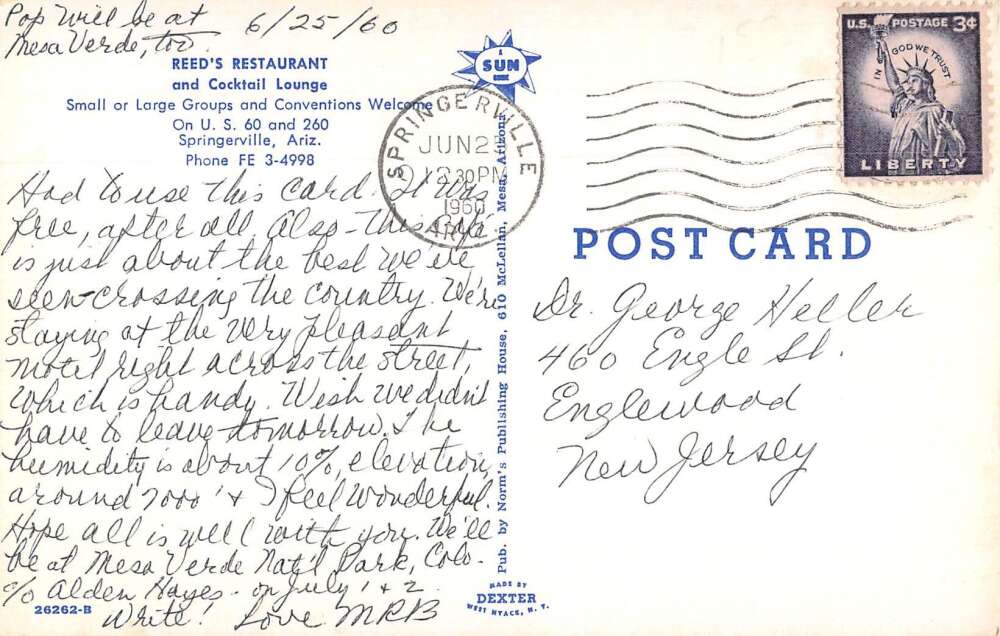 Pop will be at
Mesa Verde, too.
6/25/60
REED'S RESTAURANT
and Cocktail Lounge
Small or Large Groups and Conventions Welcome
On U. S. 60 and 260
Springerville, Ariz.
Phone FE 3-4998
Had to use this card. It was
free, after all. Also - this Cafe
is just about the best we've
seen crossing the country. We're
staying at the very pleasant
motel right across the street,
which is handy. Wish we didn't
have to leave tomorrow. The
humidity is about 10%, elevation,
around 7000' & I feel wonderful.
Hope all is well with you. We'll
be at Mesa Verde Nat'l Park, Colo.
c/o Alden Hayes - on July 1 & 2
Write! Love MRB
26262-B
A
SUN
SPRINGERVILLE
JUN 2
12 30 PM
1960
ARIZ
Pub. by Norm's Publishing House, 610 McLellan, Mesa, Arizona
MADE BY
DEXTER
WEST NYACK, N. Y.
U.S. POSTAGE 3¢
IN GOD WE TRUST
LIBERTY
POST CARD
Dr. George Heller
460 Engle St.
Englewood
New Jersey